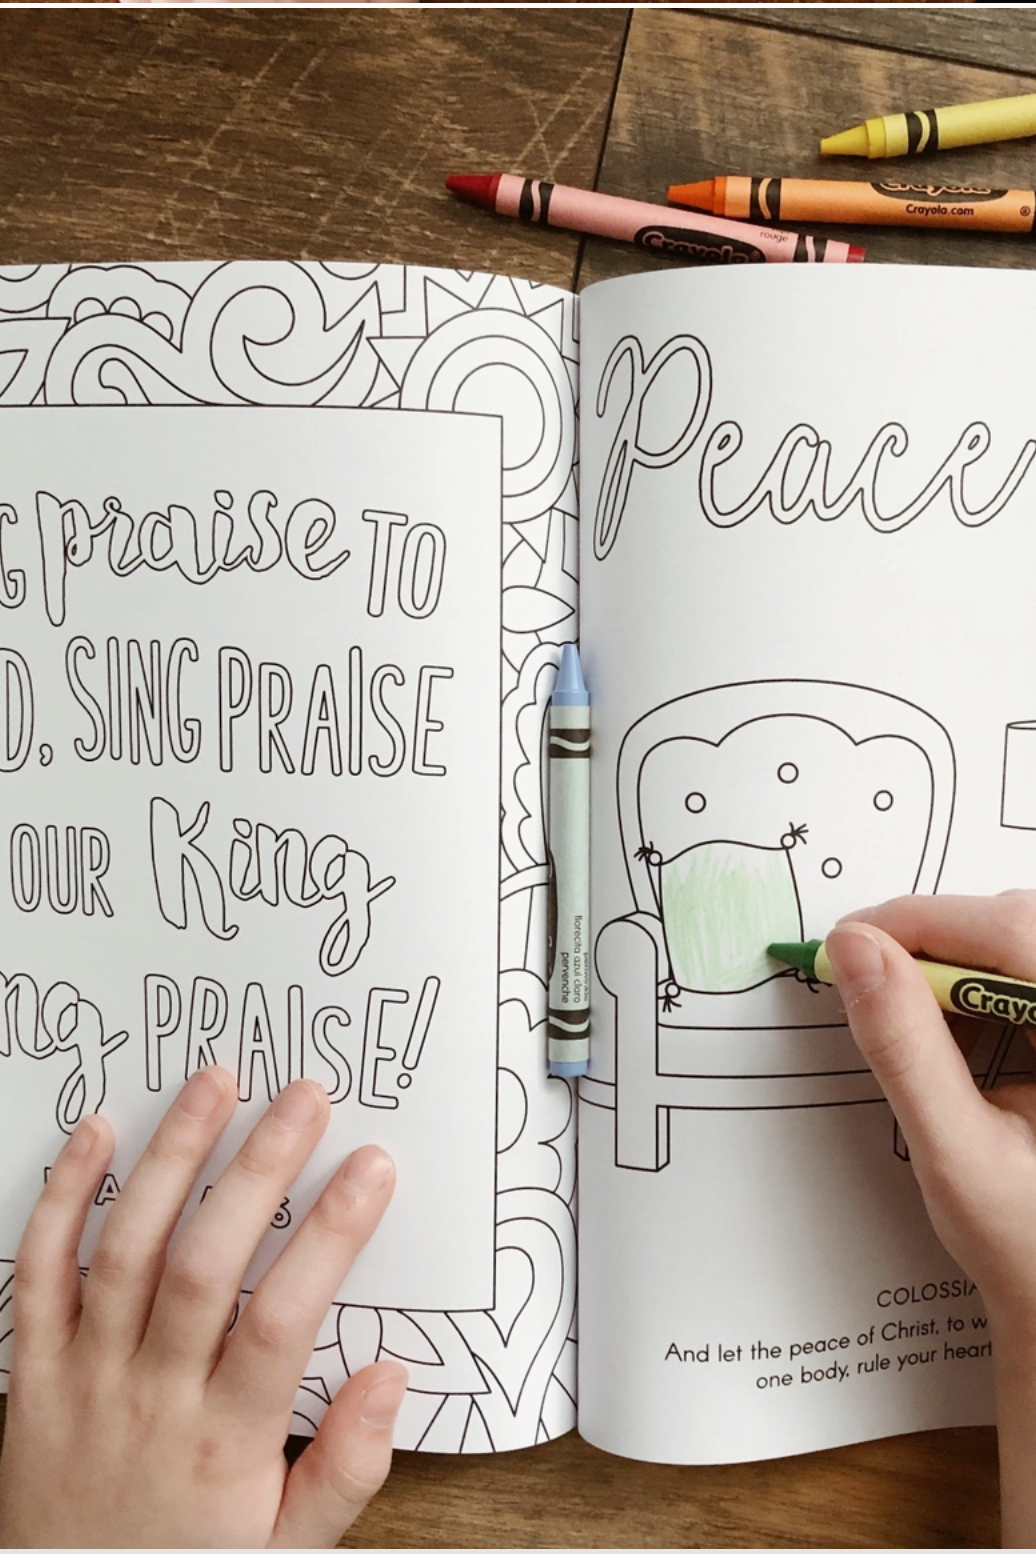 Crayola
Crayola.com
®
rouge
Crayola
G praise TO
D, SING PRAISE
OUR King
ng PRAISE!
Peace
florecita azul clara
pervenche
Crayo
COLOSSIA
And let the peace of Christ, to w
one body, rule your heart